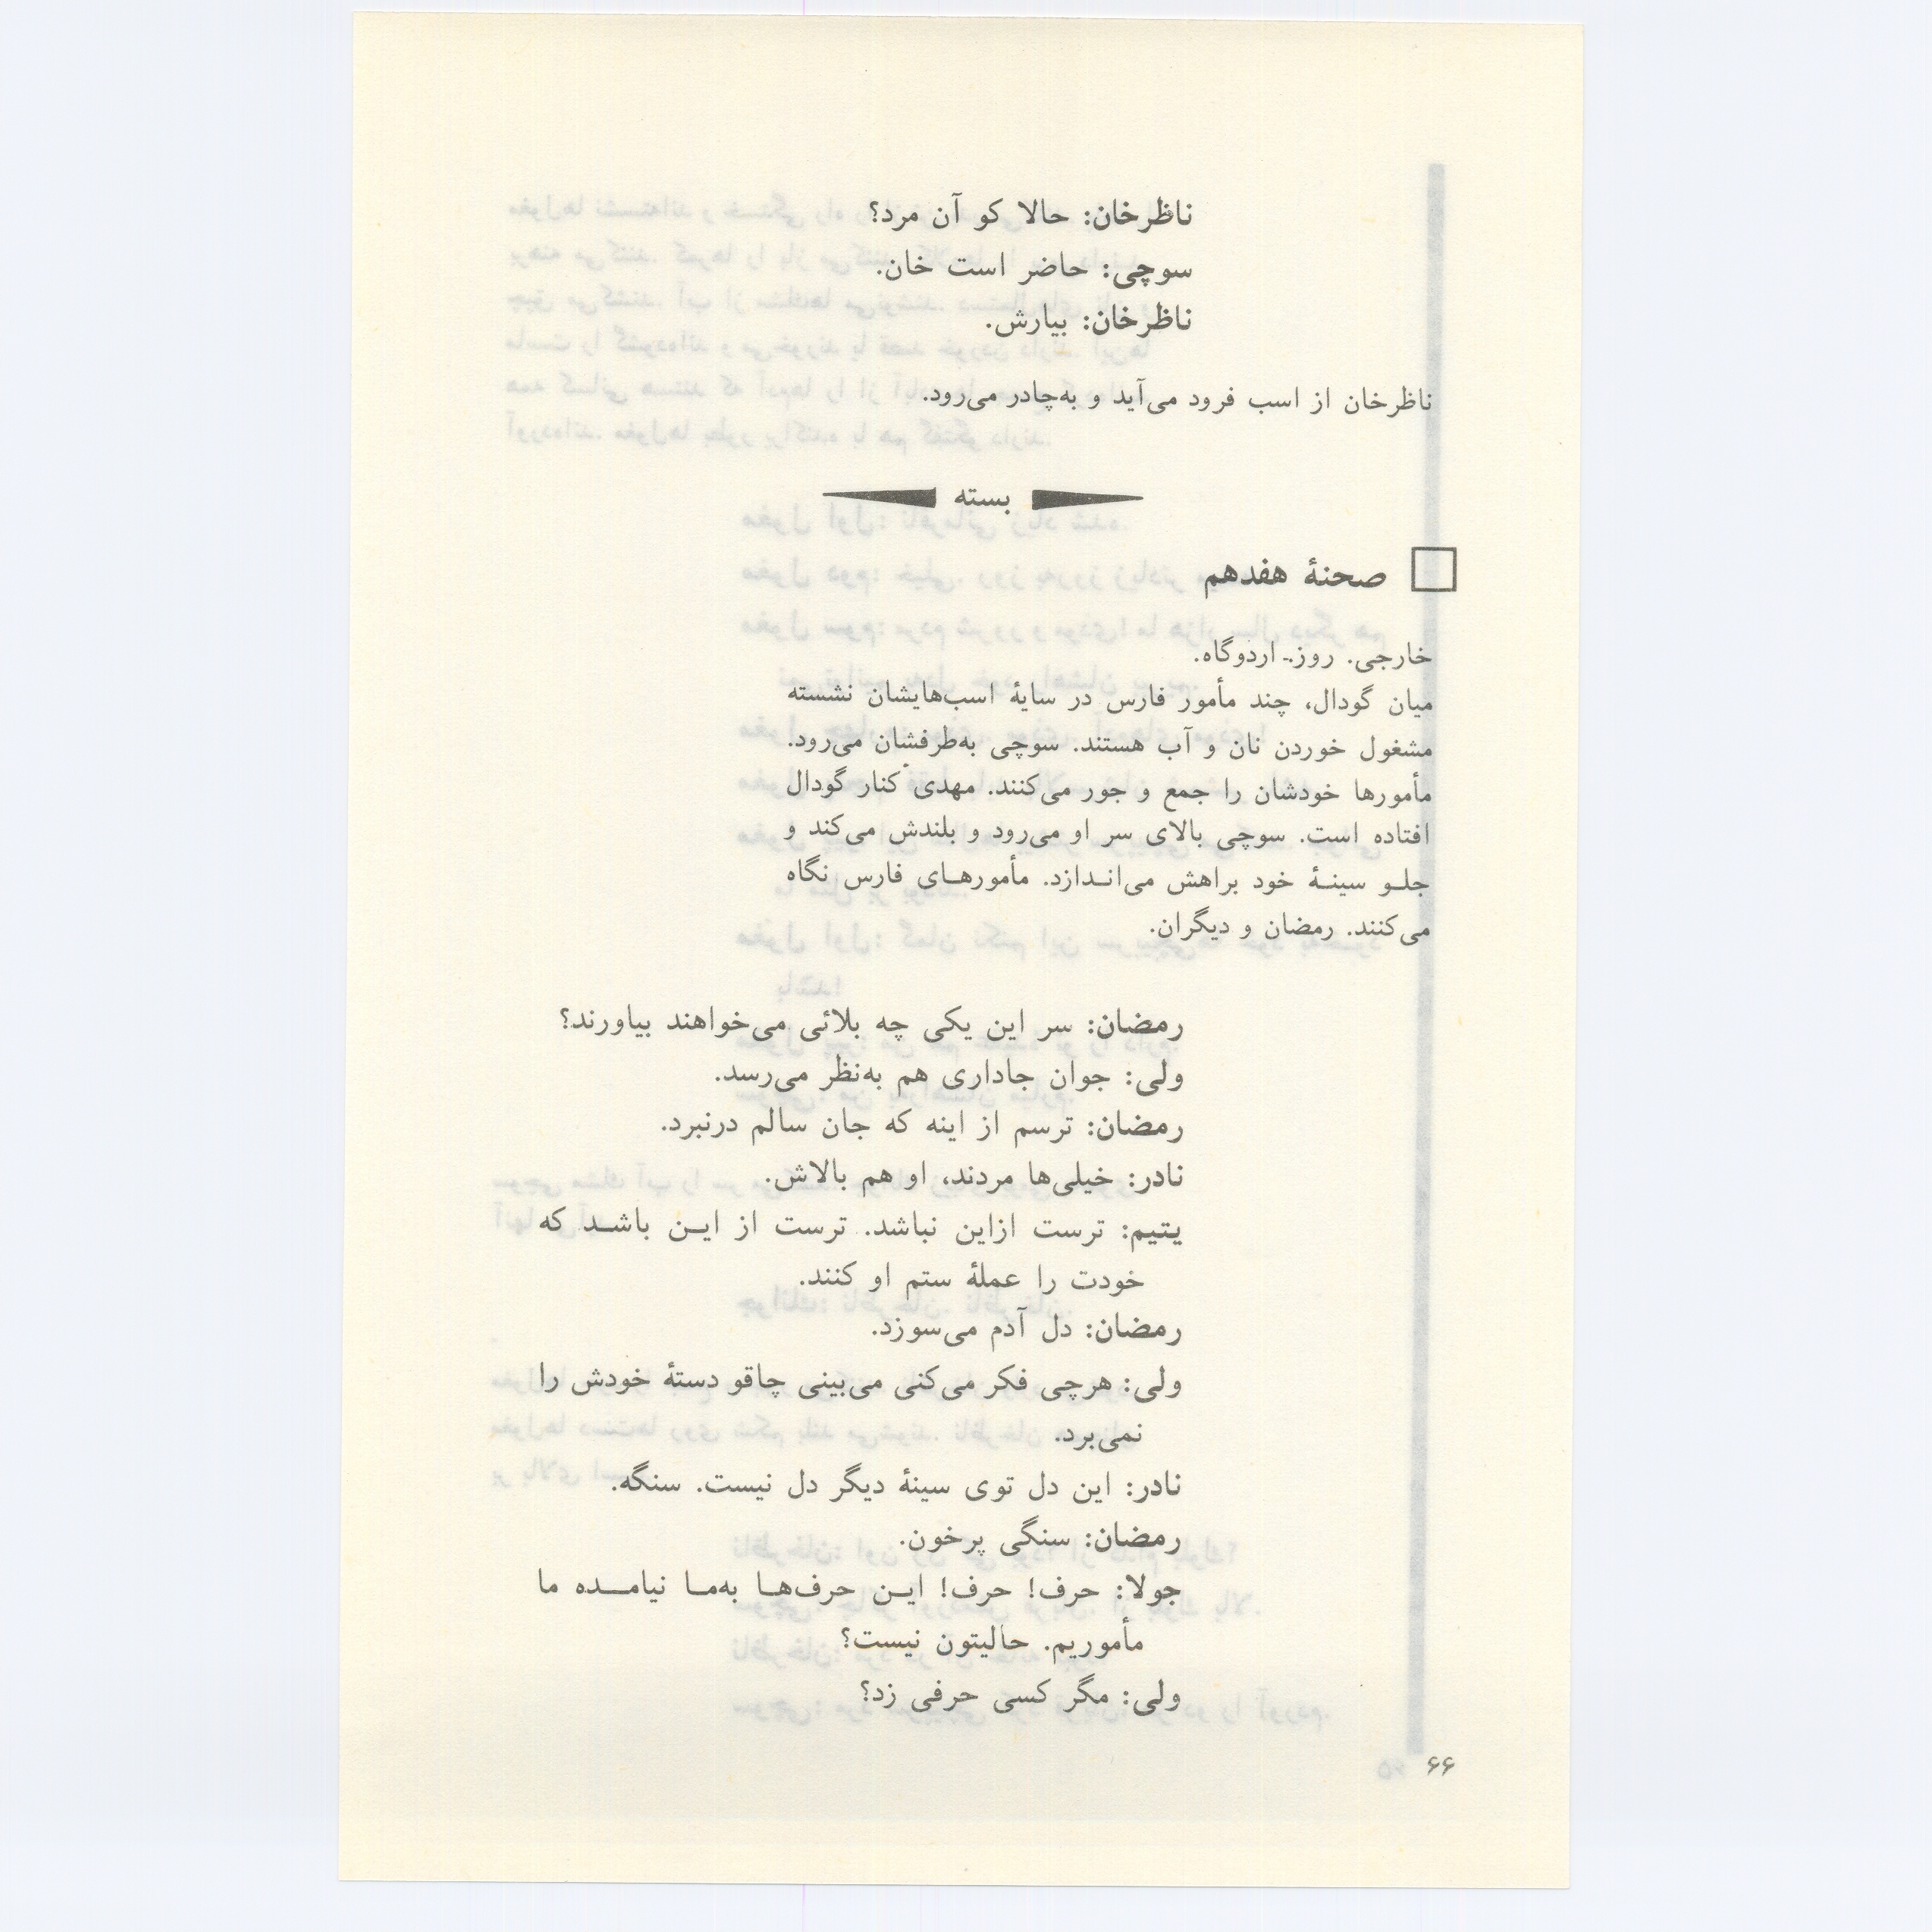 ناظرخان: حالا کو آن مرد؟
سوچی: حاضر است خان.
ناظرخان: بیارش.
ناظرخان از اسب فرود می‌آید و به‌چادر می‌رود.
بسته
صحنهٔ هفدهم
خارجی. روز.- اردوگاه.
میان گودال، چند مأمور فارس در سایهٔ اسب‌هایشان نشسته
مشغول خوردن نان و آب هستند. سوچی به‌طرفشان می‌رود.
مأمورها خودشان را جمع و جور می‌کنند. مهدی کنار گودال
افتاده است. سوچی بالای سر او می‌رود و بلندش می‌کند و
جلـو سینـهٔ خود براهش می‌انـدازد. مأمورهـای فارس نگاه
می‌کنند. رمضان و دیگران.
رمضان: سر این یکی چه بلائی می‌خواهند بیاورند؟
ولی: جوان جاداری هم به‌نظر می‌رسد.
رمضان: ترسم از اینه که جان سالم درنبرد.
نادر: خیلی‌ها مردند، او هم بالاش.
یتیم: ترست ازاین نباشد. ترست از ایـن باشـد که
خودت را عملهٔ ستم او کنند.
رمضان: دل آدم می‌سوزد.
ولی: هرچی فکر می‌کنی می‌بینی چاقو دستهٔ خودش را
نمی‌برد.
نادر: این دل توی سینهٔ دیگر دل نیست. سنگه.
رمضان: سنگی پرخون.
جولا: حرف! حرف! ایـن حرف‌هـا به‌مـا نیامـده ما
مأموریم. حالیتون نیست؟
ولی: مگر کسی حرفی زد؟
۶۶